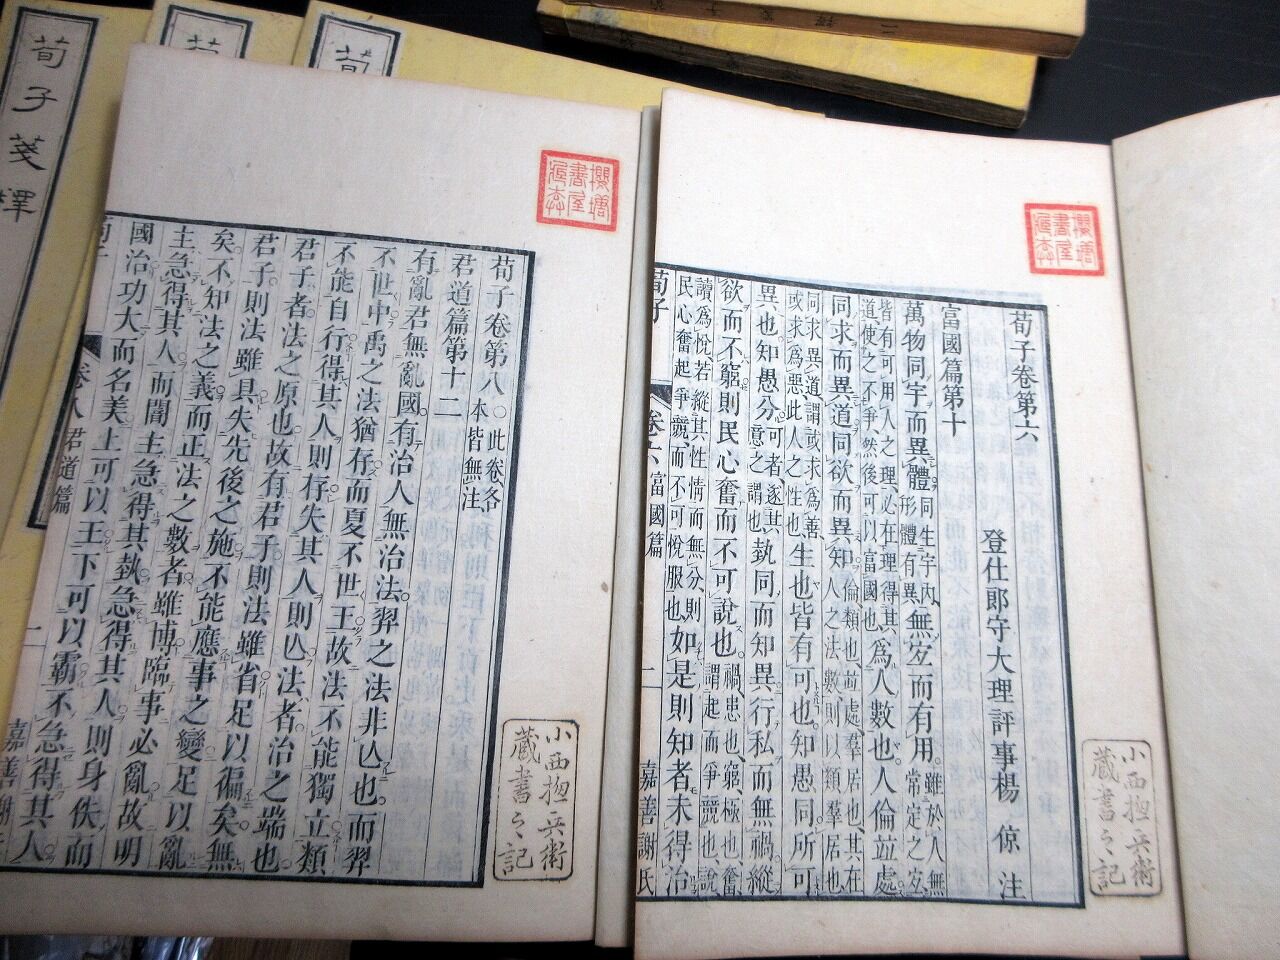 荀子箋釋
荀
荀子卷第六
登仕郎守大理評事楊倞注
富國篇第十
萬物同宇而異體同生宇內形體有異無宜而有用雖於人無常定之宜
皆有可用人之理必在理得其道使之不爭然後可以富國也為人數也人倫並處
同求而異道同欲而異知倫類也並處羣居也其在人之法數則以類羣居也
同求異道謂或求為善或求為惡此人之性也生也皆有可也知愚同所可
異也知愚分可者遂其意之謂也埶同而知異行私而無禍縱
欲而不窮則民心奮而不可說也禍患也窮極也奮謂起而爭競也說
讀為悅若縱其性情而無分則民心奮起爭競而不可悅服也如是則知者未得治
荀子 卷六 富國篇 一 嘉善謝氏
櫻塘書屋藏本
小西摠兵衛藏書之記
荀子卷第八
此卷各本皆無注
君道篇第十二
有亂君無亂國有治人無治法羿之法非亡也而羿
不世中禹之法猶存而夏不世王故法不能獨立類
不能自行得其人則存失其人則亡法者治之端也
君子者法之原也故有君子則法雖省足以徧矣無
君子則法雖具失先後之施不能應事之變足以亂
矣不知法之義而正法之數者雖博臨事必亂故明
主急得其人而闇主急得其埶急得其人則身佚而
國治功大而名美上可以王下可以霸不急得其人
卷八 君道篇 一 嘉善謝
櫻塘書屋藏本
小西摠兵衛藏書之記